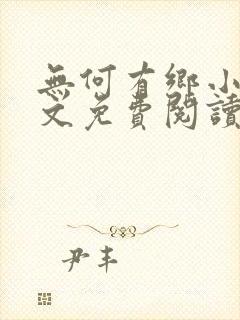 無何有鄉小
文免費閱讀
尹丰